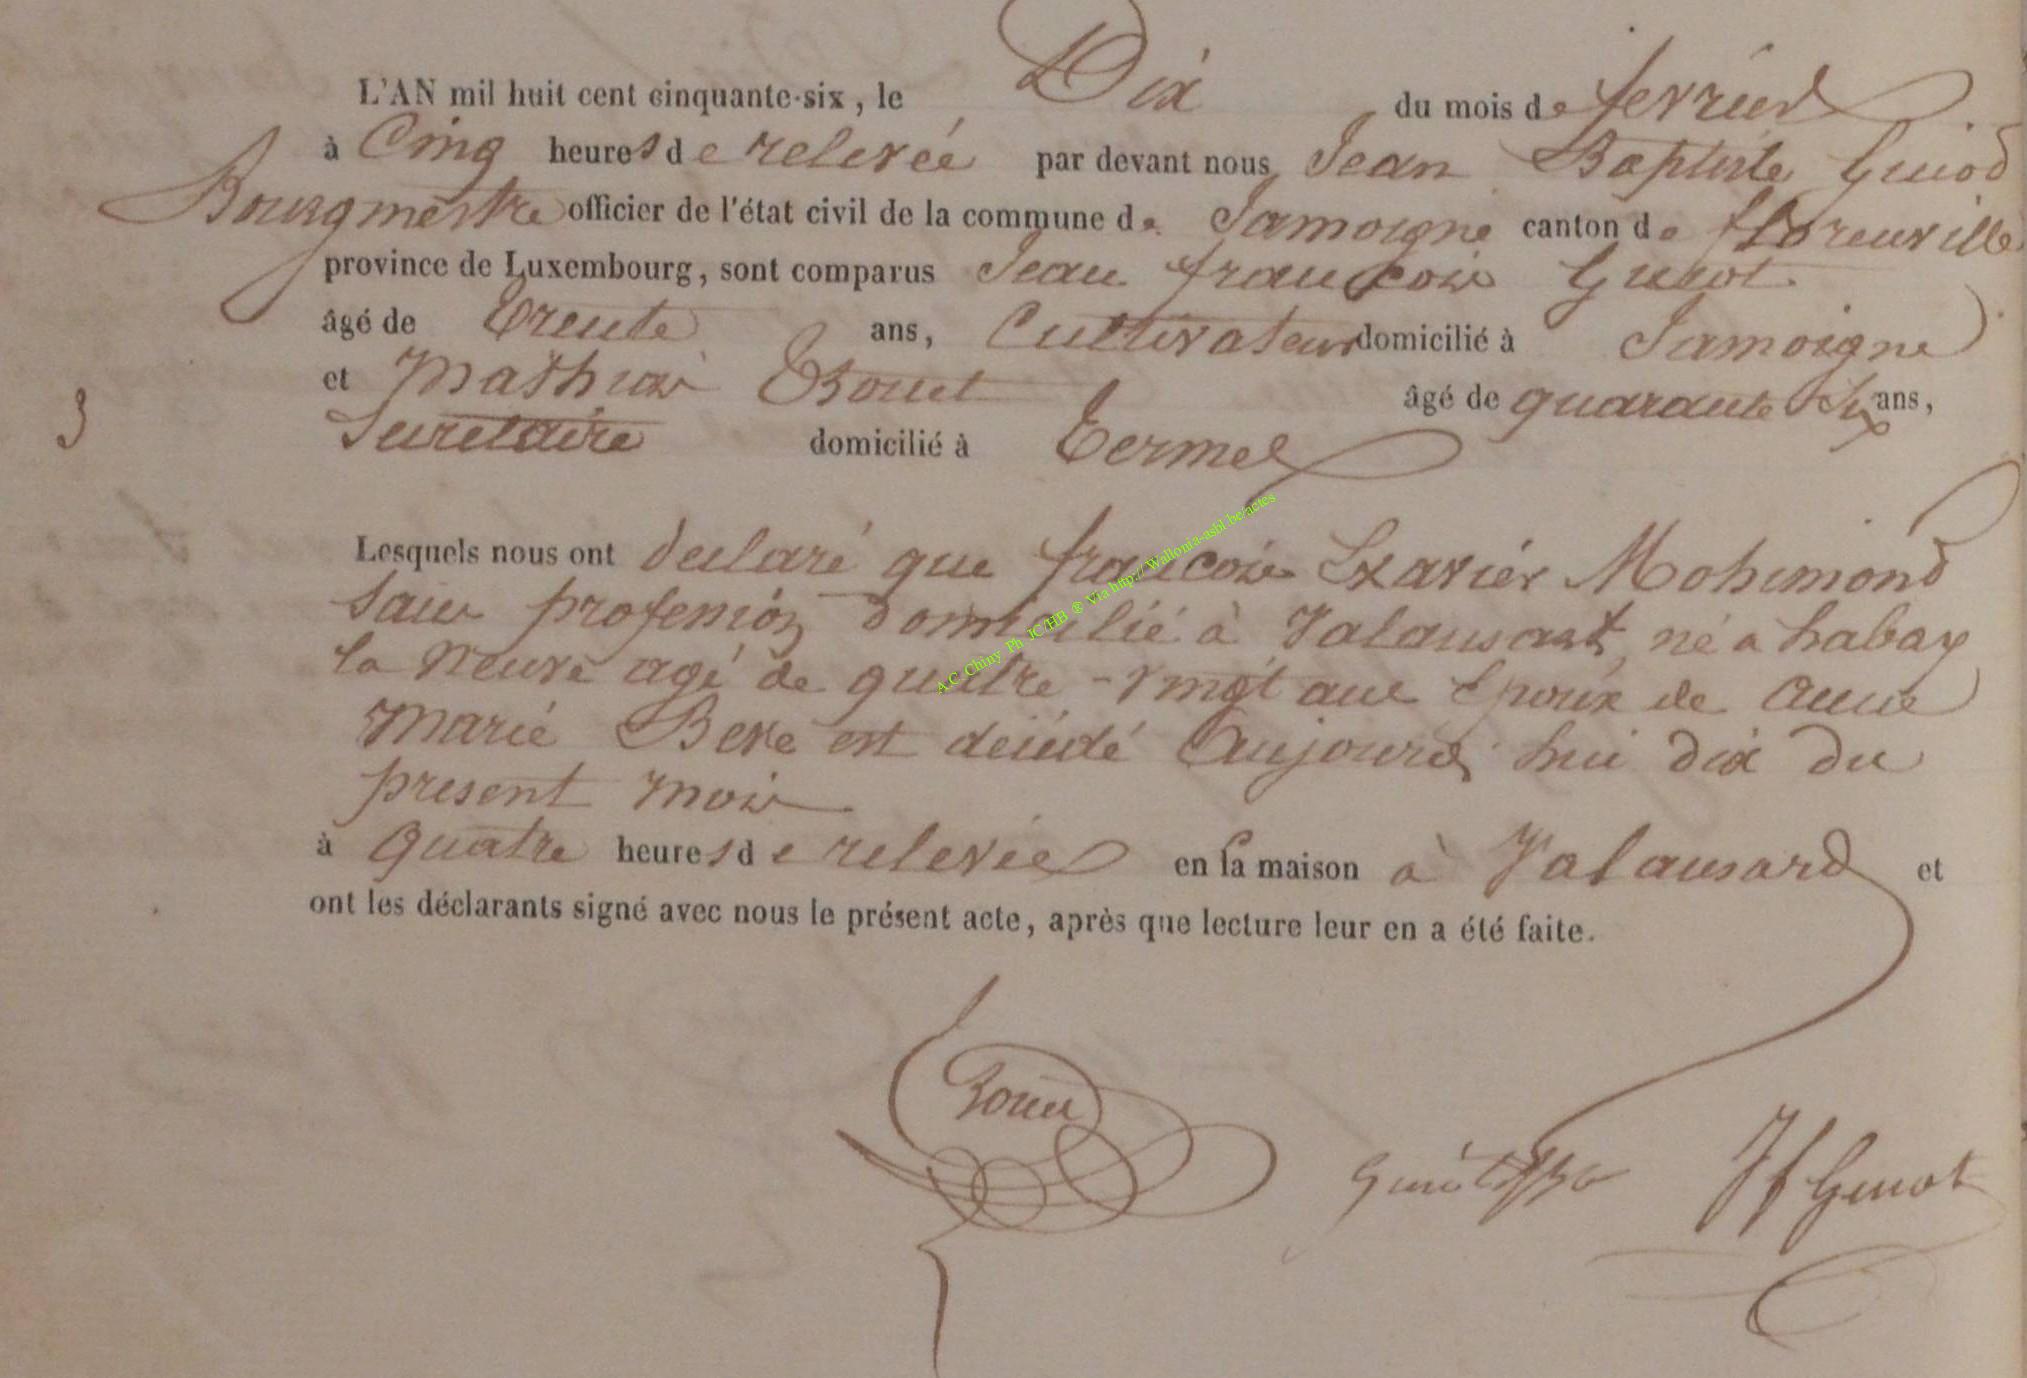 L'AN mil huit cent cinquante-six, le Dix du mois de fevrier
à Cinq heures de relevée par devant nous Jean Baptiste Guiod
Bourgmestre officier de l'état civil de la commune de Jamoigne canton de florenville
province de Luxembourg, sont comparus Jean françois Guiot
âgé de Trente ans, Cultivateur domicilié à Jamoigne
et Mathieu Bouet âgé de quarante Six ans,
3
Secretaire domicilié à Termes
Lesquels nous ont declaré que françois Exavier Mohimond
sans profession domicilié à Valansart, né a habay
la neuve agé de quatre-vingt ans Epoux de Anne
Marie Beve est décédé Aujourd'hui dix du
present mois
à quatre heures de relevée en sa maison à Valansard et
ont les déclarants signé avec nous le présent acte, après que lecture leur en a été faite.
Bouet Guiot JF Guiot
A.C. Chiny Ph JC/HB ® Via http://Wallonia-asbl.be/actes